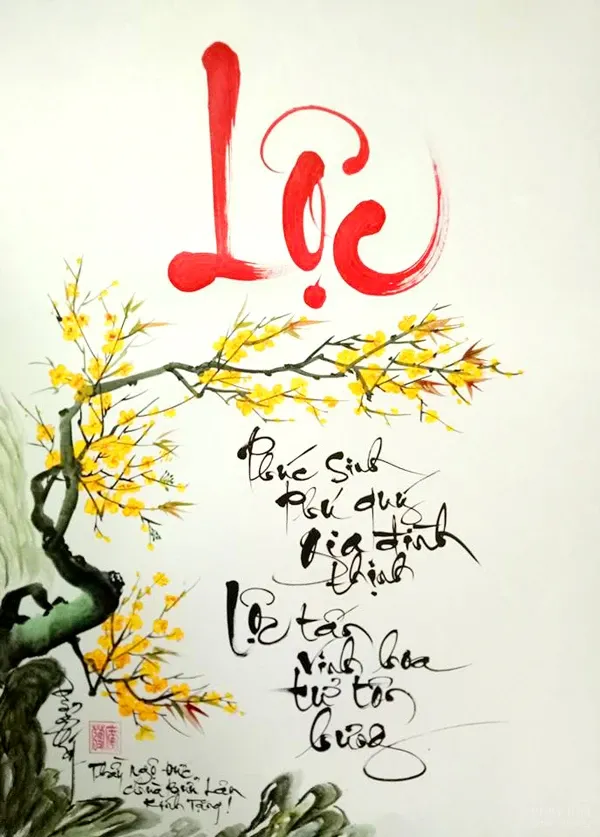 Lộc
Phúc sinh
Phú quý
gia đình
thịnh
Lộc tấn
vinh hoa
tử tôn
hưng
Thầy Ngộ Đức
chùa Bửu Lâm
Kính Tặng!